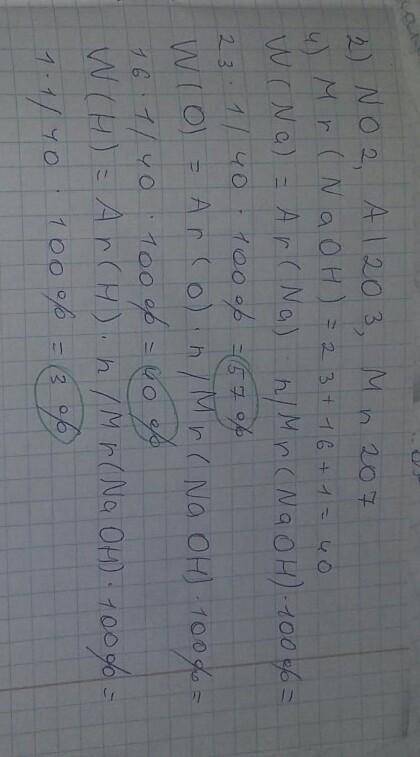 2) NO2, Al2O3, Mn2O7
4) Mr(NaOH) = 23+16+1 = 40
W(Na) = Ar(Na) · n/Mr(NaOH) · 100% =
23 · 1/40 · 100% = 57%
W(O) = Ar(O) · n/Mr(NaOH) · 100% =
16 · 1/40 · 100% = 40%
W(H) = Ar(H) · n/Mr(NaOH) · 100% =
1 · 1/40 · 100% = 3%